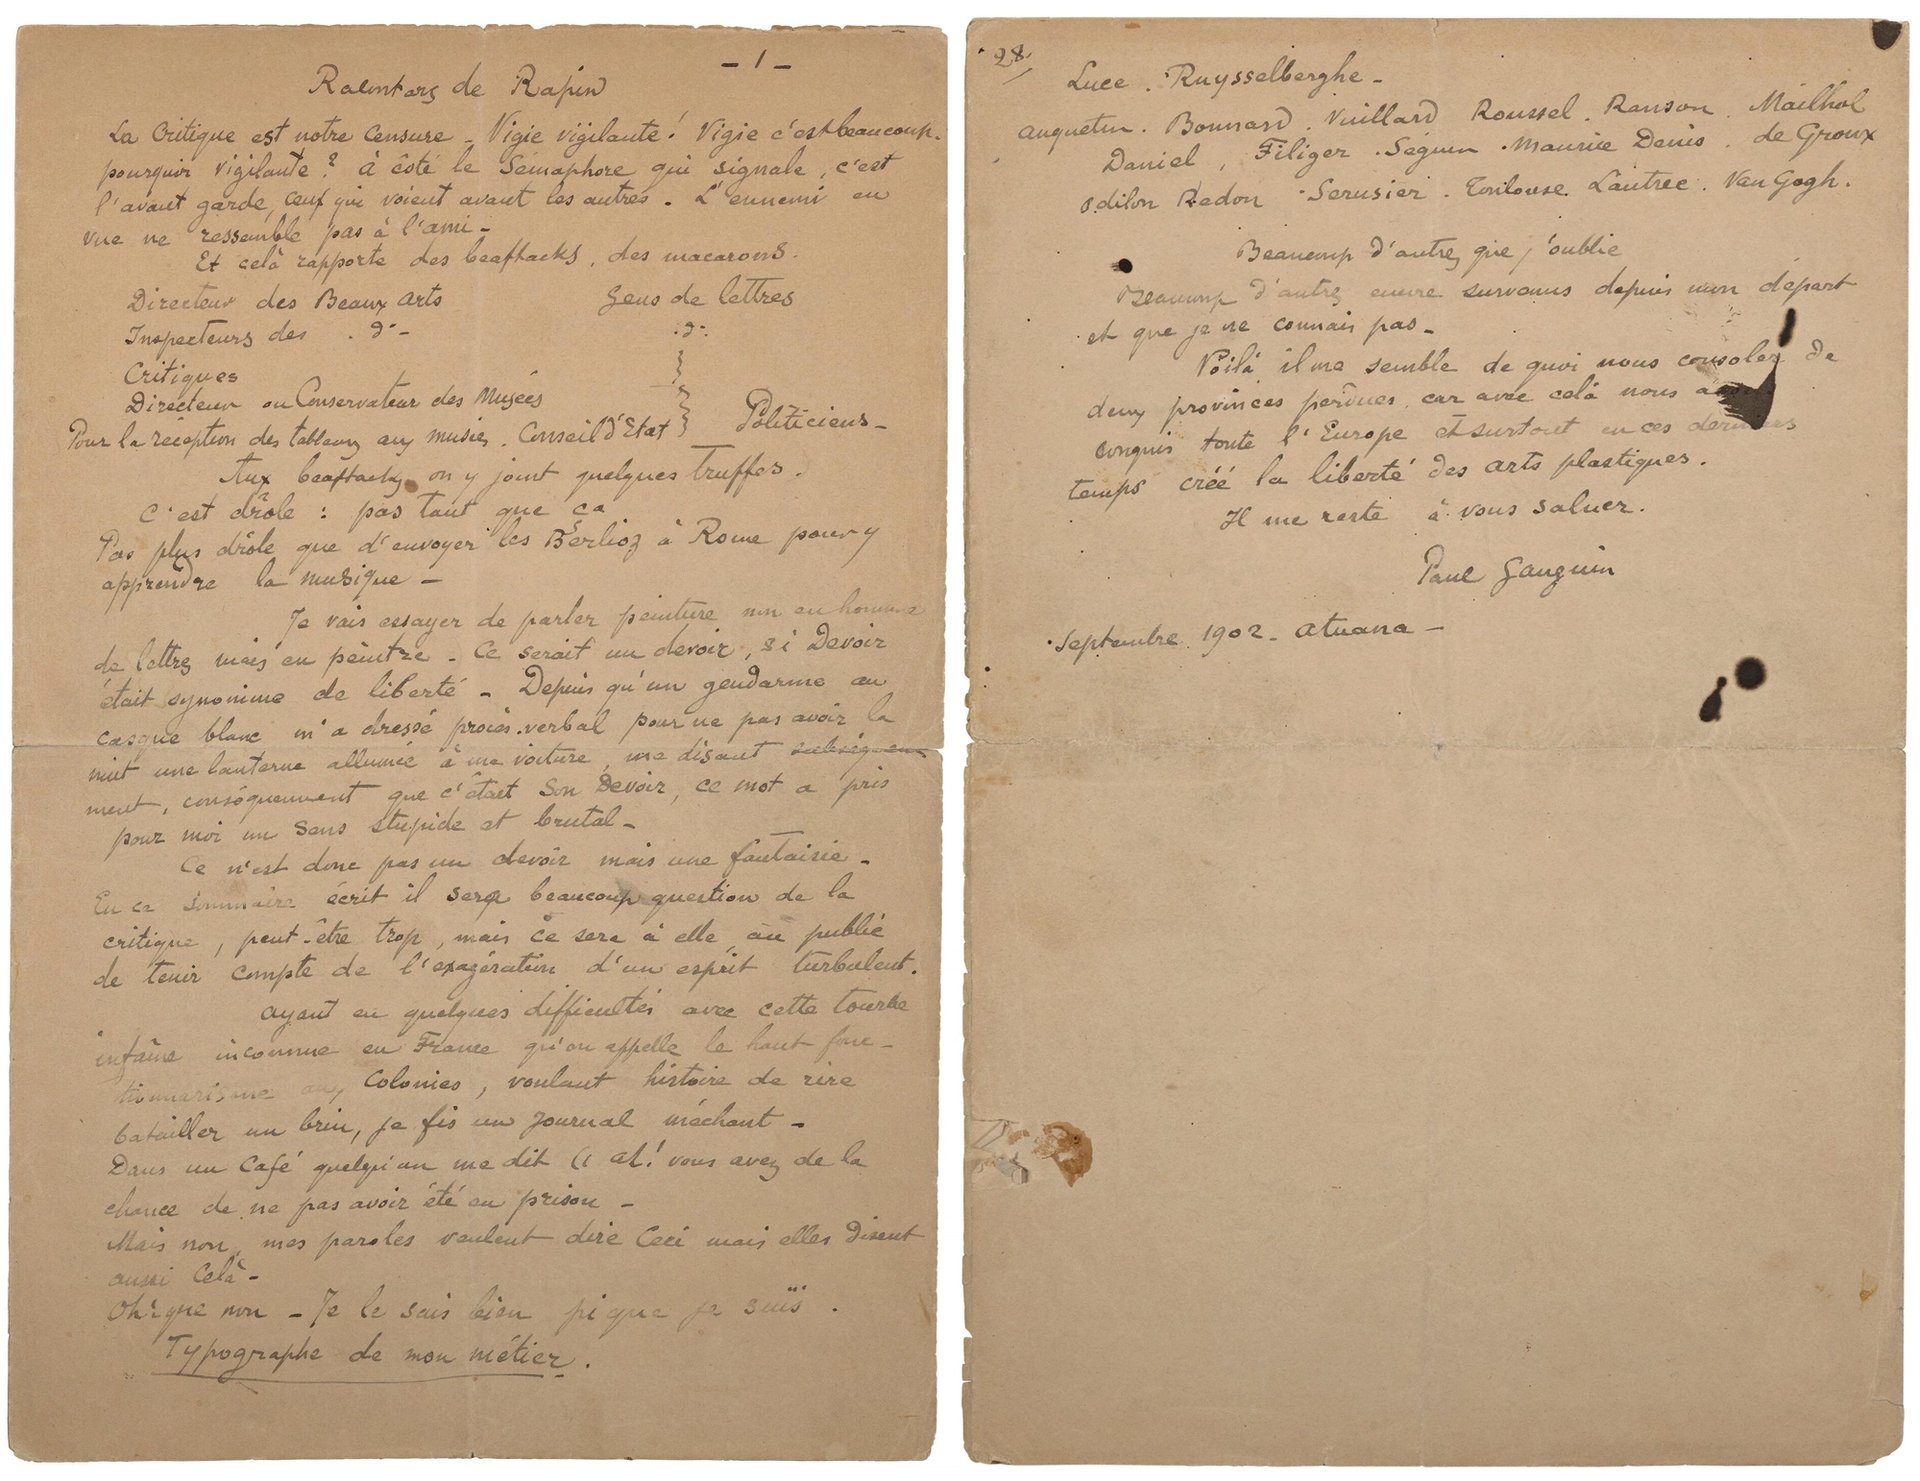 - 1 -
Racontars de Rapin
La Critique est notre censure _ Vigie vigilante! Vigie c'est beaucoup.
pourquoi vigilante? à côté le Sémaphore qui signale, c'est
l'avant garde, ceux qui voient avant les autres. L'ennemi en
vue ne ressemble pas à l'ami _
Et celà rapporte des beaftacks, des macarons.
Directeur des Beaux Arts Gens de lettres
Inspecteurs des . d° - . d° .
Critiques
Directeur ou Conservateur des Musées
Pour la réception des tableaux aux musées. Conseil d'Etat } Politiciens _
Aux beaftacks on y joint quelques truffes.
C'est drôle : pas tant que ça
Pas plus drôle que d'envoyer les Berlioz à Rome pour y
apprendre la musique _
Je vais essayer de parler peinture non en homme
de lettres mais en peintre _ Ce serait un devoir, si Devoir
était synonime de liberté _ Depuis qu'un gendarme au
casque blanc m'a dressé procès-verbal pour ne pas avoir la
nuit une lanterne allumée à ma voiture, me disant
ment, conséquemment que c'était Son Devoir, ce mot a pris
pour moi un sens stupide et brutal _
Ce n'est donc pas un devoir mais une fantaisie _
En ce sommaire écrit il sera beaucoup question de la
critique, peut-être trop, mais ce sera à elle, au public
de tenir compte de l'exagération d'un esprit turbulent.
Ayant eu quelques difficultés avec cette tourbe
infâme inconnue en France qu'on appelle le haut fonc-
tionnarisme aux Colonies, voulant histoire de rire
batailler un brin, je fis un journal méchant _
Dans un Café quelqu'un me dit (( ah! vous avez de la
chance de ne pas avoir été en prison _
Mais non, mes paroles veulent dire Ceci mais elles disent
aussi Celà _
Oh! que non _ Je le sais bien pi que je suis .
Typographe de mon métier.
28
Luce . Ruysselberghe _
Anquetin . Bonnard . Vuillard Roussel . Ranson . Mailhol
Daniel , Filiger . Séguin . Maurice Denis . de Groux
Odilon Redon . Serusier . Toulouse Lautrec . Van Gogh .
Beaucoup d'autres que j'oublie
Beaucoup d'autres encore survenus depuis mon départ
et que je ne connais pas _
Voilà il me semble de quoi nous consoler de
deux provinces perdues, car avec celà nous avons
conquis toute l'Europe et surtout en ces derniers
temps créé la liberté des arts plastiques.
Il me reste à vous saluer.
Paul Gauguin
Septembre 1902 _ Atuana _